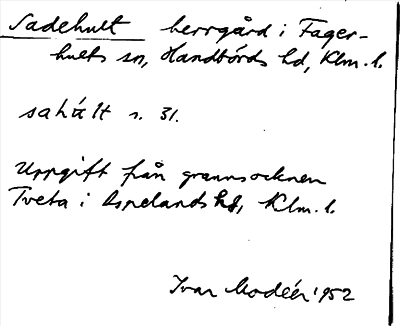 Sadehult herrgård i Fager-
hults sn, Handbörds hd, Klm. l.
sahúlt n. 31.
Uppgift från grannsocknen
Tveta i Aspelands hd, Klm. l.
Ivar Modéer 1952